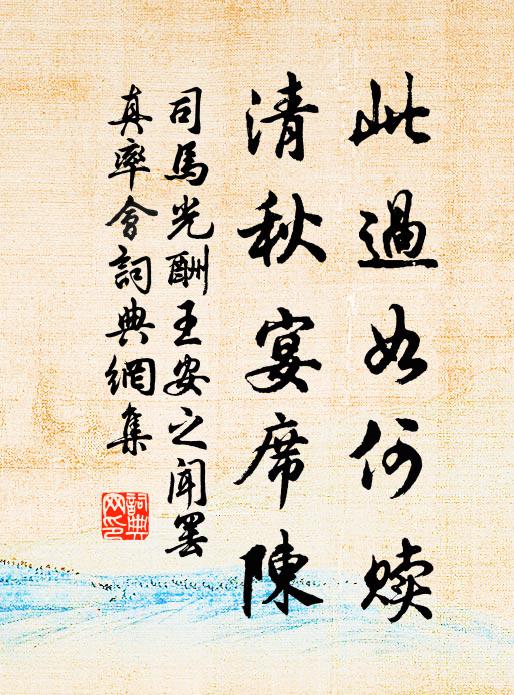 此過如何赎
清秋宴席陳
司馬光酬王安之聞罢
真率會詞典網集
詞典
网印